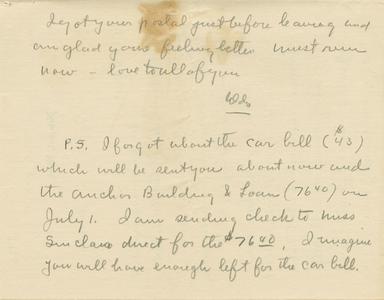 I got your postal just before leaving and
am glad your feeling better must run
now - love to all of you

P.S. I forgot about the car bill ($43)
which will be sent you about now and
the anchor Building & Loan (7640) on
July 1. I am sending check to Miss
Sinclair direct for the $7640, I imagine
you will have enough left for the car bill.